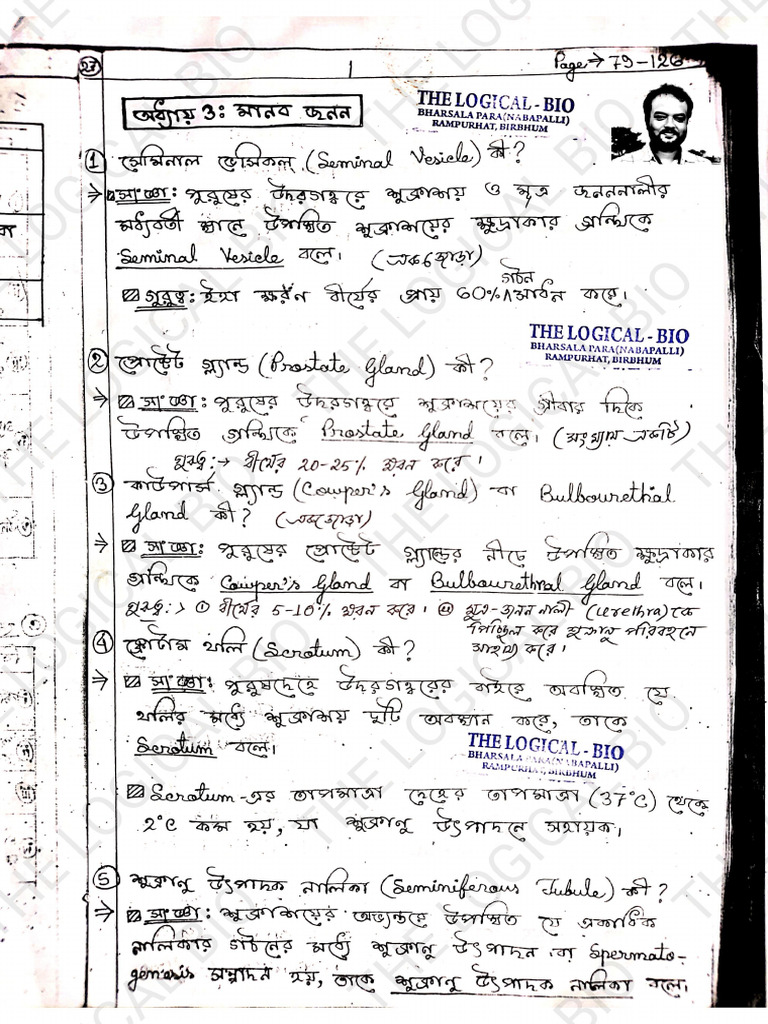 27
1
Page → 79-126
THE LOGICAL - BIO
BHARSALA PARA(NABAPALLI)
RAMPURHAT, BIRBHUM
অধ্যায় 3: মানব জনন
① সেমিনাল ভেসিকল্ (Seminal Vesicle) কী?
⇒ সংজ্ঞা: পুরুষের উদরগহ্বরে শুক্রাশয় ও মূত্র জনননালীর
মধ্যবর্তী স্থানে উপস্থিত শুক্রাশয়ের ক্ষুদ্রাকার গ্রন্থিকে
Seminal Vesicle বলে। (একজোড়া)
গুরুত্ব: ইহা ক্ষরণ বীর্যের প্রায় 60% ^ গঠন সাধন করে।
THE LOGICAL - BIO
BHARSALA PARA(NABAPALLI)
RAMPURHAT, BIRBHUM
② প্রোস্টেট গ্ল্যান্ড (Prostate Gland) কী?
⇒ সংজ্ঞা: পুরুষের উদরগহ্বরে শুক্রাশয়ের গ্রীবার দিকে
উপস্থিত গ্রন্থিকে Prostate Gland বলে। (সংখ্যায় একটি)
গুরুত্ব:→ বীর্যের 20-25% গঠন করে।
③ কাউপার্স গ্ল্যান্ড (Cowper's Gland) বা Bulbourethal
Gland কী? (একজোড়া)
⇒ সংজ্ঞা: পুরুষের প্রোস্টেট গ্ল্যান্ডের নীচে উপস্থিত ক্ষুদ্রাকার
গ্রন্থিকে Cowper's Gland বা Bulbourethral Gland বলে।
গুরুত্ব:→ ① বীর্যের 5-10% গঠন করে। ⑪ মূত্র-জনন নালী (urethra) কে
পিচ্ছিল করে শুক্রাণু পরিবহনে
সাহায্য করে।
④ স্ক্রোটাম থলি (Scrotum) কী?
⇒ সংজ্ঞা: পুরুষদেহে উদরগহ্বরের বাইরে অবস্থিত যে
থলির মধ্যে শুক্রাশয় দুটি অবস্থান করে, তাকে
Scrotum বলে।
THE LOGICAL - BIO
BHARSALA PARA(NABAPALLI)
RAMPURHAT, BIRBHUM
Scrotum-এর তাপমাত্রা দেহের তাপমাত্রা (37°C) থেকে
2°C কম হয়, যা শুক্রাণু উৎপাদনে সহায়ক।
⑤ শুক্রাণু উৎপাদক নালিকা (Seminiferous Tubule) কী?
⇒ সংজ্ঞা: শুক্রাশয়ের অভ্যন্তরে উপস্থিত যে একাধিক
নালিকার গঠনের মধ্যে শুক্রাণু উৎপাদন বা Spermato-
genesis সম্পাদন হয়, তাকে শুক্রাণু উৎপাদক নালিকা বলে।